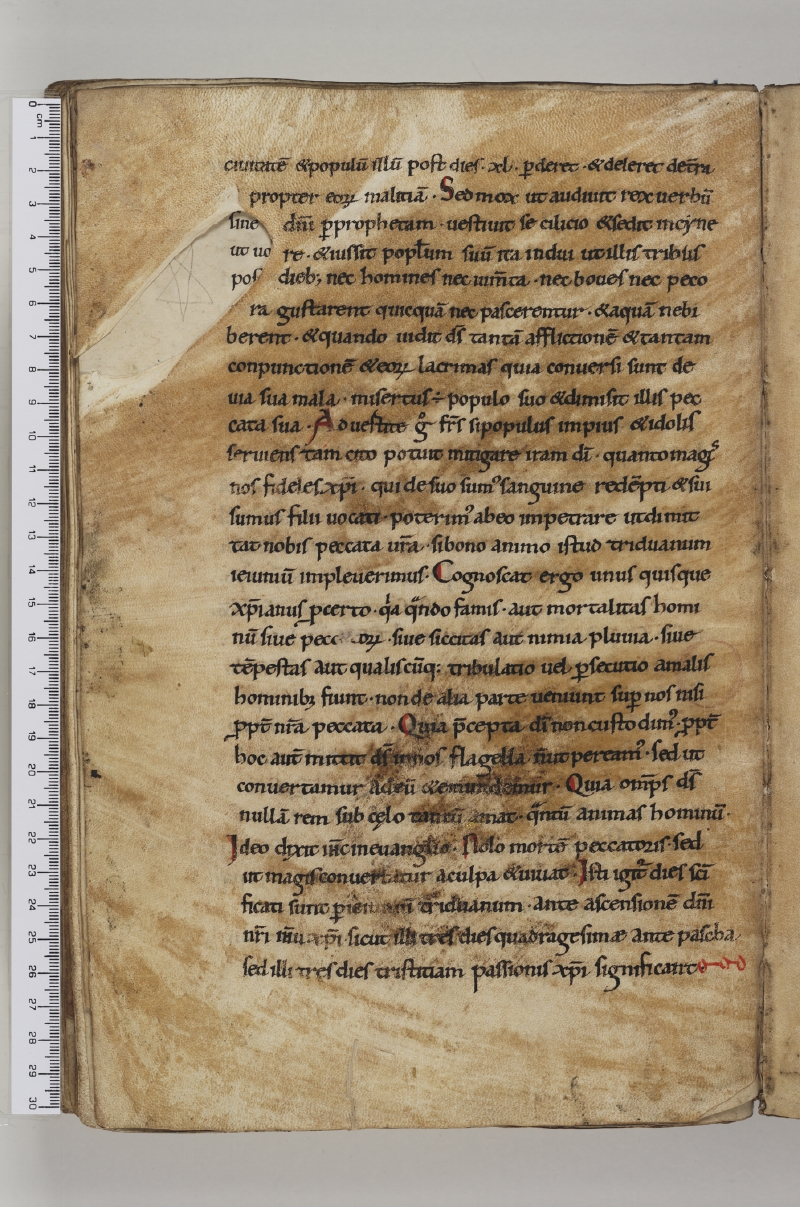 ciuitatē &populū illū post dies .xl. ꝑderet · &deleret det̄ra
propter eoꝝ malitiā · Sed mox ut audiuit rex uerbū
sine dn̄i ꝑprophetam · uestiuit se cilicio &sedit incyne
ut uo re · &iussit popl̄um suū ita indui ut illis tribus
pos dieb; nec homines nec ium̄ta · nec boues nec peco
ra gustarent quicquā nec pascerentur · &aquā nebi
berent · &quando uidit dc̄s tantā afflictionē &tantam
conpunctionē &eoꝝ lacrimas quia conuersi sunt de
uia sua mala · misertus ÷ populo suo &dimisit illis pec
cata sua · Aduertite gͦ fr̄s sipopulus impius &idolis
seruiens tam cito potuit mitigare iram dī · quantomagꝭ
nos fideles xp̄i · qui de suo sumꝰ sanguine redēpti &sui
sumus filii uocati · poterimꝰ abeo impetrare utdimit
tat nobis peccata ur̄a · sibono animo istud triduanum
ieiuniū impleuerimus · Cognoscat ergo unus quisque
xp̄ianus ꝑcerto · qͥa qͣndo famis · aut mortalitas homi
nū siue pecc oꝝ · siue siccitas aut nimia pluuia · siue
tēpestas aut qualiscūq; tribulatio uel ꝑsecutio amalis
hominibꝫ fiunt · non de alia parte ueniunt suꝑ nos nisi
ꝓpt̄ nr̄a peccata · Quia p̄cepta dī non custodimꝰ · ꝓpt̄
hoc aut̄ mittit ds̄ in nos flagella n̄ ut pereamꝰ · sed ut
conuertamur ad eū &emundemur · Quia omp̄s ds̄
nullā rem sub cęlo tantū amat · qͣntū animas hominū ·
Ideo dixit in euanglio · Nolo mortē peccatoris · sed
ut magis conuertatur aculpa &uiuat · Isti igit̄ dies sc̄i
ficati sunt triduanum · ante ascensionē dn̄i
nr̄i ih̄u xp̄i · sicut illi tres dies quadragesimæ ante pascha
sed illi tres dies tristitiam passionis xp̄i significant